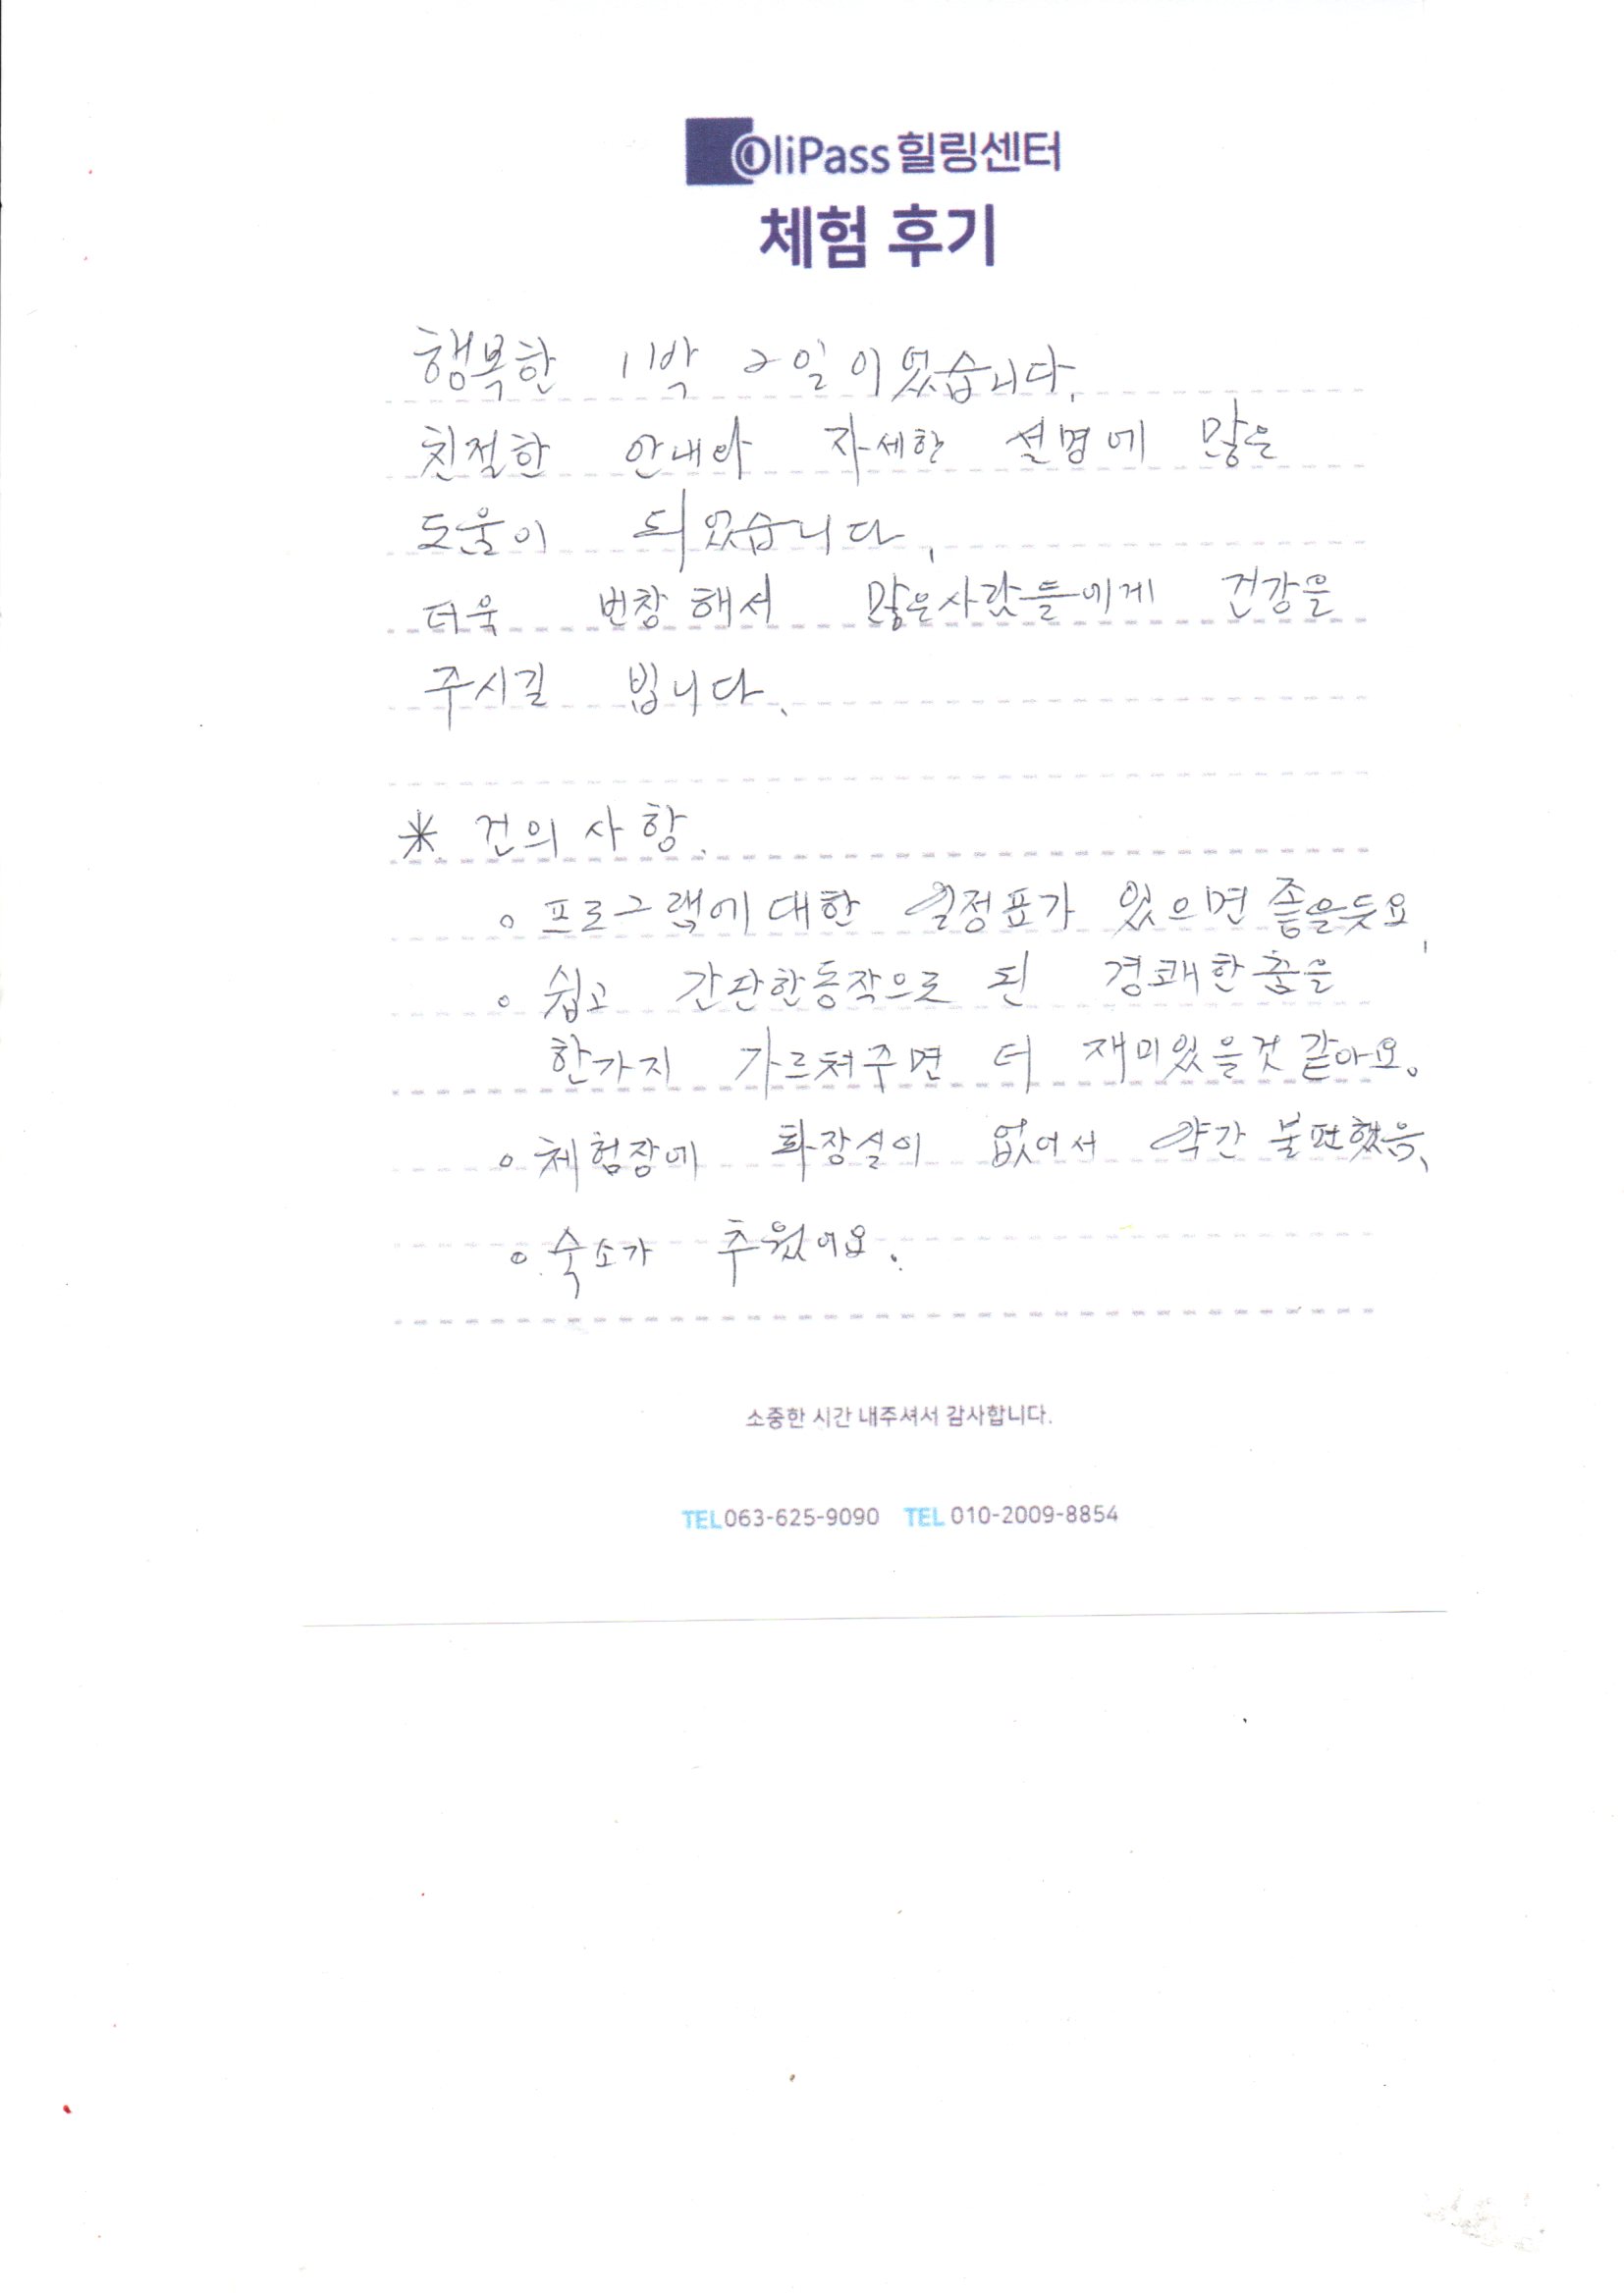 OliPass 힐링센터
체험 후기
행복한 1박 2일이였습니다.
친절한 안내와 자세한 설명에 많은
도움이 되었습니다.
더욱 번창해서 많은사람들에게 건강을
주시길 빕니다.
* 건의사항.
○ 프로그램에 대한 일정표가 있으면 좋을듯요.
○ 쉽고 간단한동작으로 된 경쾌한 춤을
한가지 가르쳐주면 더 재미있을것 같아요.
○ 체험장에 화장실이 없어서 약간 불편했음.
○ 숙소가 추웠어요.
소중한 시간 내주셔서 감사합니다.
TEL 063-625-9090 TEL 010-2009-8854